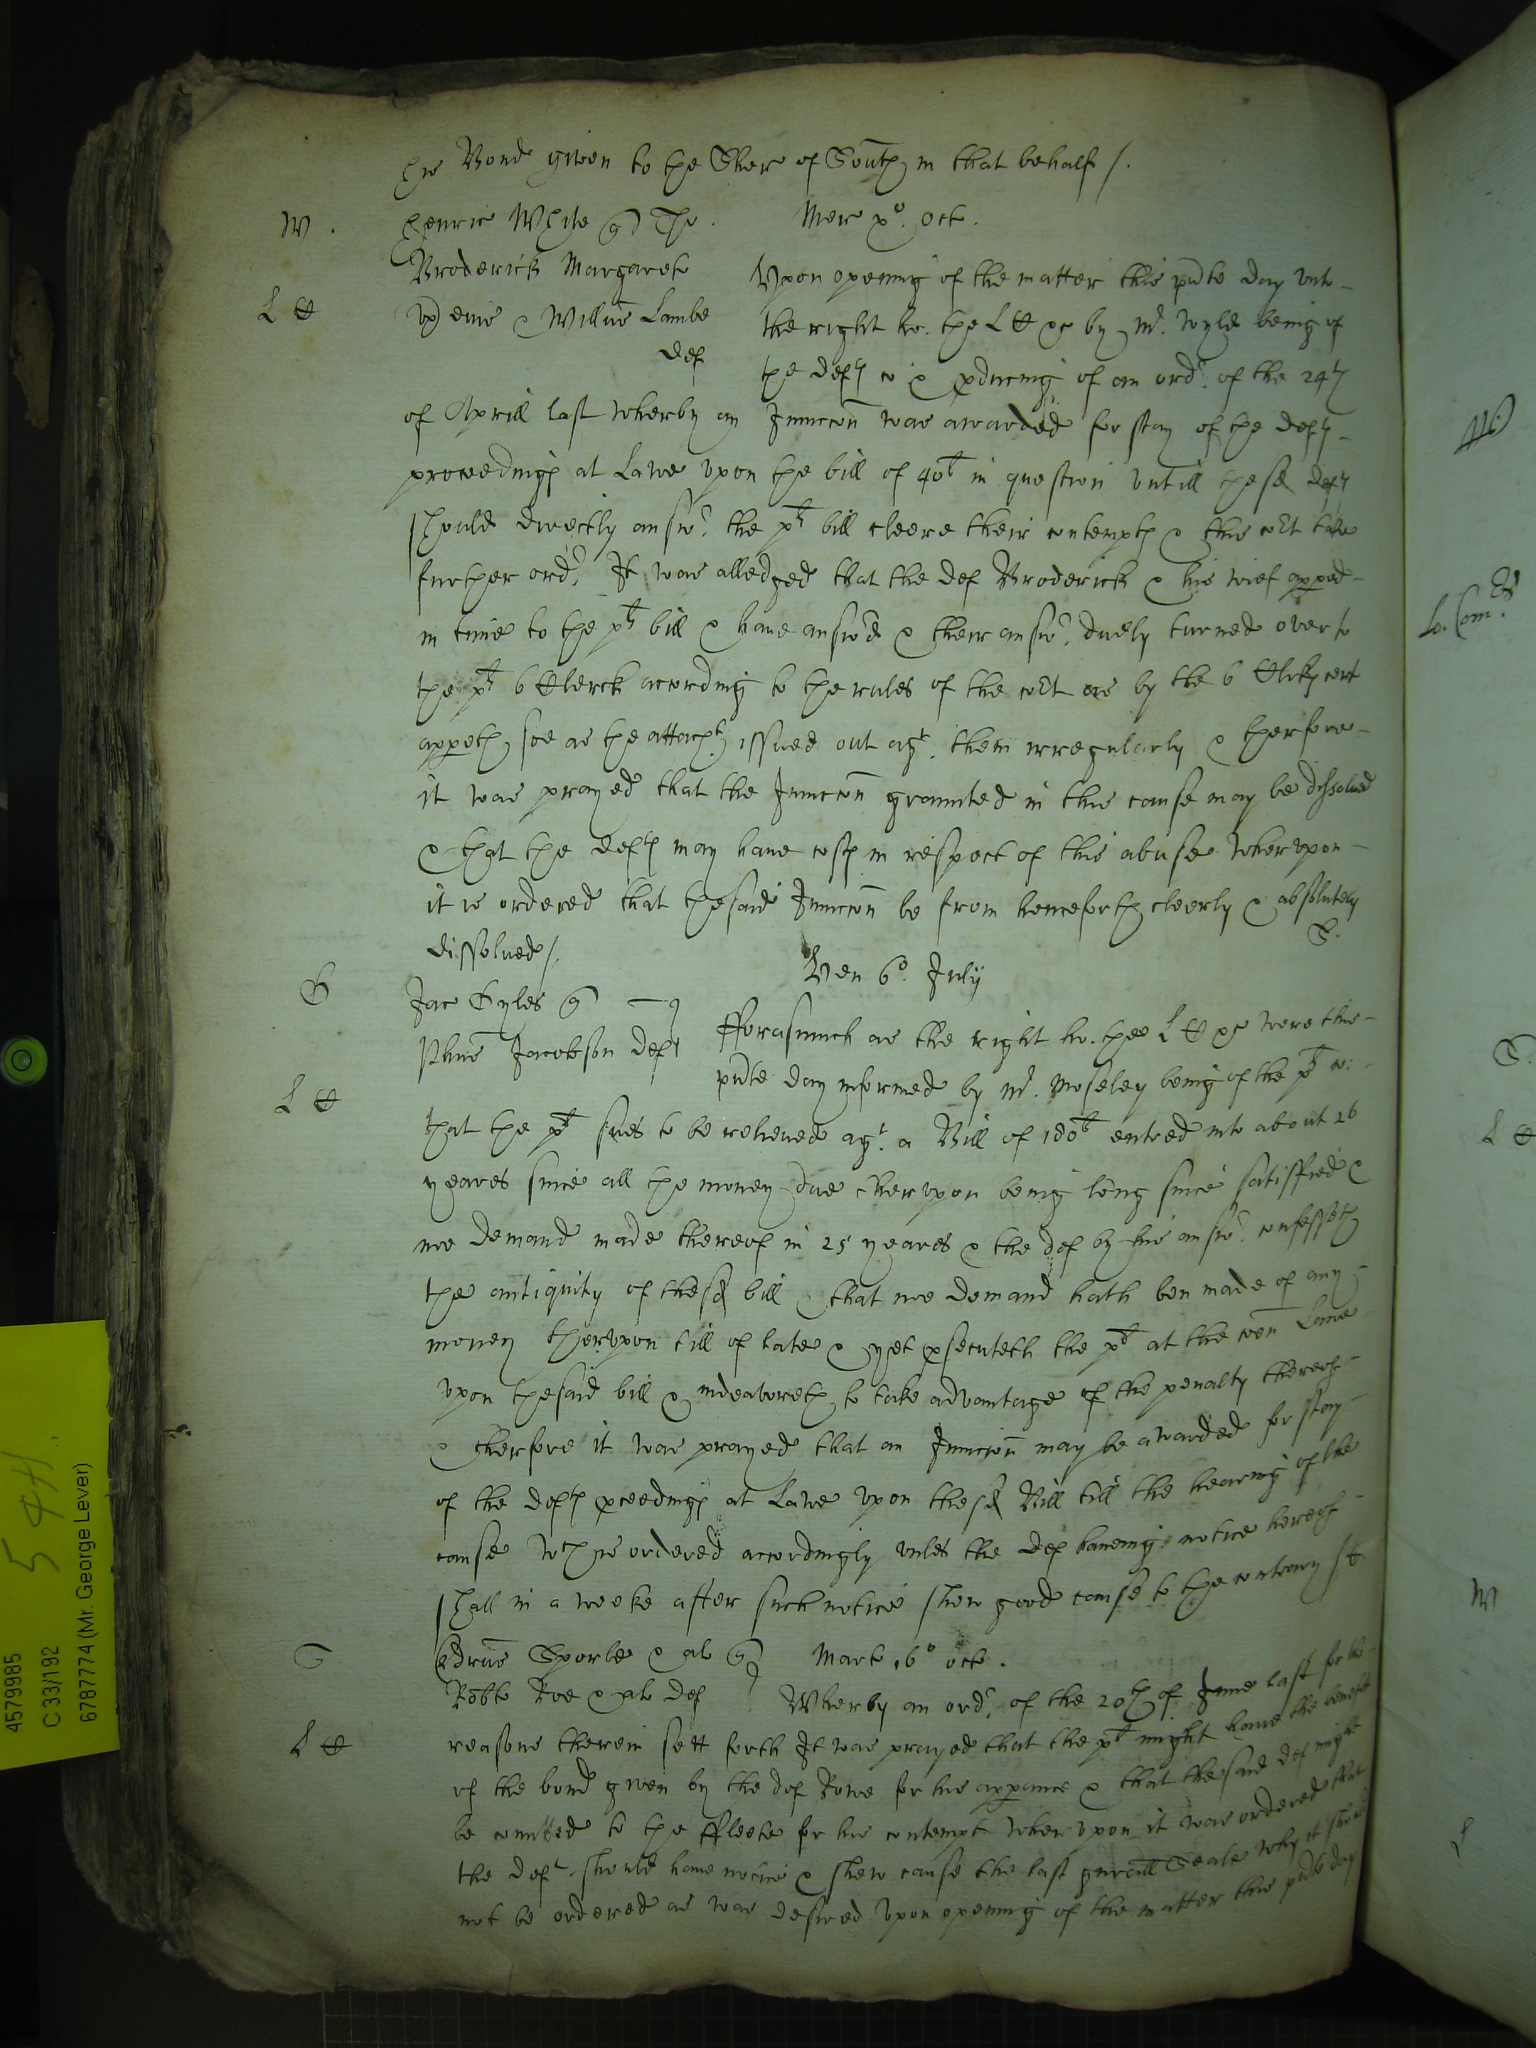 his Bond given to the Sher of South in that behalf /.
W. Henric White q Tho. Mer xº. Oct.
Broderick Margaret
vx eius & Willus Lambe
def
L C
Vpon opening of the matter this pnte day vnto
the right ho. the L C &c by Mr. Wyld being of
the defts co & pducing of an ordr. of the 24th
of Aprill last wherby an Iniuncon was awarded for stay of the defts
proceedings at Lawe vpon the bill of 40l in question vntill the sd defts
should directly answr the plts bill cleere their contempts & this cort take
further ordr. It was alledged that the def Broderick & his wief appred
in time to the plts bill & haue answrd & their answr. duely turned over to
the plts 6 Clerck according to the rules of the cort as by the 6 Clks cert
appeth soe as the attachts issued out agt. them irregularly & therfore
it was prayed that the Iniuncon graunted in this cause may be dissolued
& that the defts may haue costs in respect of this abuse Wherevpon
it is ordered that the said Iniuncon be from henceforth cleerly & absolutely
dissolued /. S.
Ven 6º. July
G Jac Gyles q
Phus Jacobson deft
L C
Fforasmuch as the right ho. the L C &c were this
pnte day informed by Mr. Moseley being of the plts co:
that the plt sues to be releiued agt. a Bill of 180l entred into about 26
yeares since all the money due therevpon being long since satisfied &
noe demand made thereof in 25 yeares & the def by his answr. confesseth
the antiquity of the sd bill & that noe demand hath ben made of any
money thervpon till of late & yet psecuteth the plt at the coen Lawe
vpon the said bill & indeavoreth to take advantage of the penalty thereof
& therfore it was prayed that an Iniuncon may be awarded for stay
of the defts pceedings at Lawe vpon the sd Bill till the hearing of the
cause Wch is ordered accordingly vnles the def haueing notice hereof
shall in a weeke after such notice shew good cause to the contrary /
Edrus Sporle & al q Mart 16º Oct.
Robto Roe & al def
L C
Wherby an ordr. of the 20th of June last for the
reasons therein sett forth It was prayed that the plt might haue the benefitt
of the bond given by the def Rowe for his appance & that the said def might
be comitted to the Ffleete for his contempt Wherevpon it was ordered that
the deft. should haue notice & shew cause the last gnrall Seale why it should
not be ordered as was desired Vpon opening of the matter this pnte day
W
Lo. Com
S.
L C
W
L
54H.
4579985
C 33/192
6787774 (Mr. George Lever)